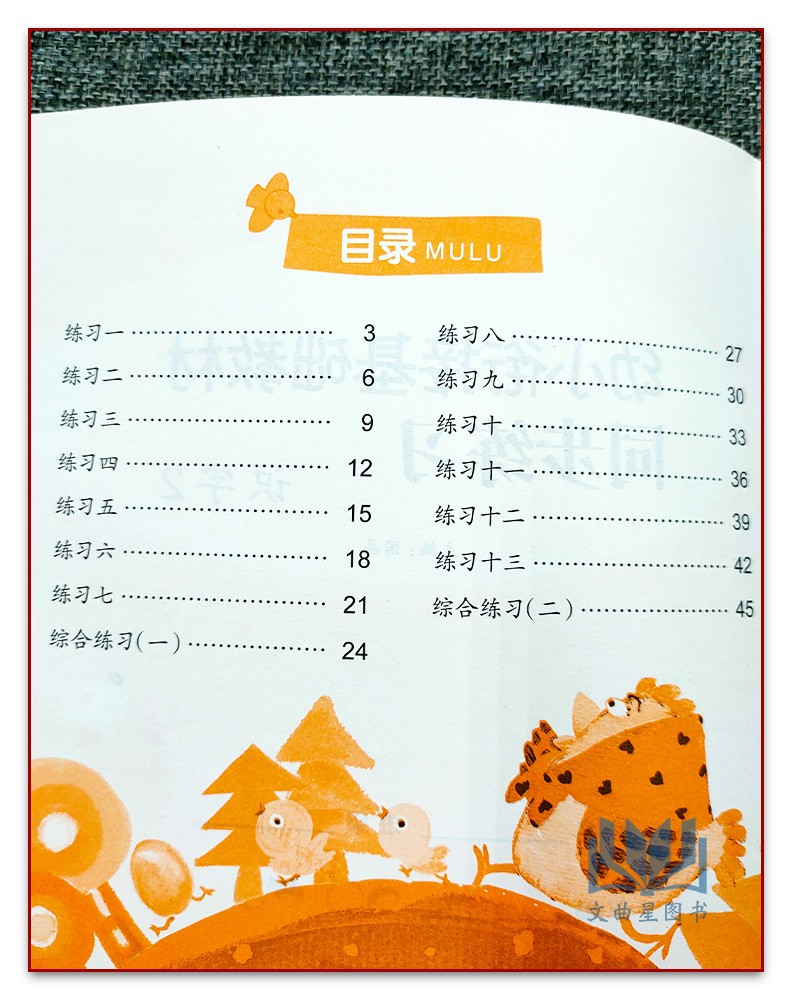 目录 MULU
练习一 ………………………… 3
练习二 ………………………… 6
练习三 ………………………… 9
练习四 ………………………… 12
练习五 ………………………… 15
练习六 ………………………… 18
练习七 ………………………… 21
综合练习(一) ………………… 24
练习八 ………………………… 27
练习九 ………………………… 30
练习十 ………………………… 33
练习十一 ……………………… 36
练习十二 ……………………… 39
练习十三 ……………………… 42
综合练习(二) ………………… 45
幼小衔接基础教材
同步练习
识字2
文曲星图书